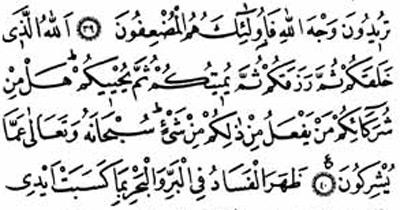 تُرِيْدُوْنَ وَجْهَ اللّٰهِ فَاُولٰٓئِكَ هُمُ الْمُضْعِفُوْنَ ﴿۳۹﴾ اَللّٰهُ الَّذِيْ
خَلَقَكُمْ ثُمَّ رَزَقَكُمْ ثُمَّ يُمِيْتُكُمْ ثُمَّ يُحْيِيْكُمْ ؕ هَلْ مِنْ
شُرَكَآئِكُمْ مَنْ يَفْعَلُ مِنْ ذٰلِكُمْ مِنْ شَيْءٍ ؕ سُبْحَانَهٗ وَتَعَالٰى عَمَّا
يُشْرِكُوْنَ ﴿۴۰﴾ ظَهَرَ الْفَسَادُ فِي الْبَرِّ وَالْبَحْرِ بِمَا كَسَبَتْ اَيْدِي